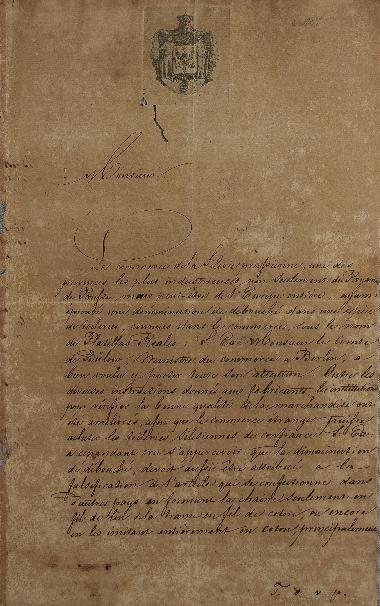 Monsieur
Le commerce de la Silésie prussienne, une des
provinces les plus industrieuses, non seulement du Royaume
de Prusse, mais peut-être de l'Europe entière, ayant
éprouvé une diminution de débouchés dans une espèce
de toilerie, connues dans le commerce, sous le nom
de Platillas Reales, S. Ex. Monsieur le Comte
de Bülow, Ministre du commerce à Berlin, a
bien voulu y porter toute son attention. Outre les
diverses instructions donné aux fabricants, les institutions
pour vérifier la bonne qualité de la marchandise ont
été améliorées, afin que le commerce étranger puisse
acheter les toileries Silésiennes de confiance. S. Ex.
a cependant cru s'appercevoir que la diminution
de débouché, devoit aussi être attribué à la
falsification de l'article qui se confectionne dans
d'autres pays en formant la chaine seulement en
fil de lin & la trame en fil de coton, ou encore
en les imitant entièrement en coton, principalement
T. s. v. p.